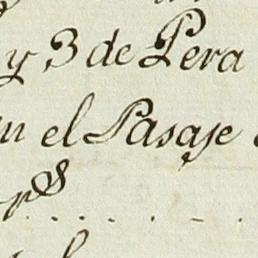 y 3 de Pera
en el Pasaje
rs